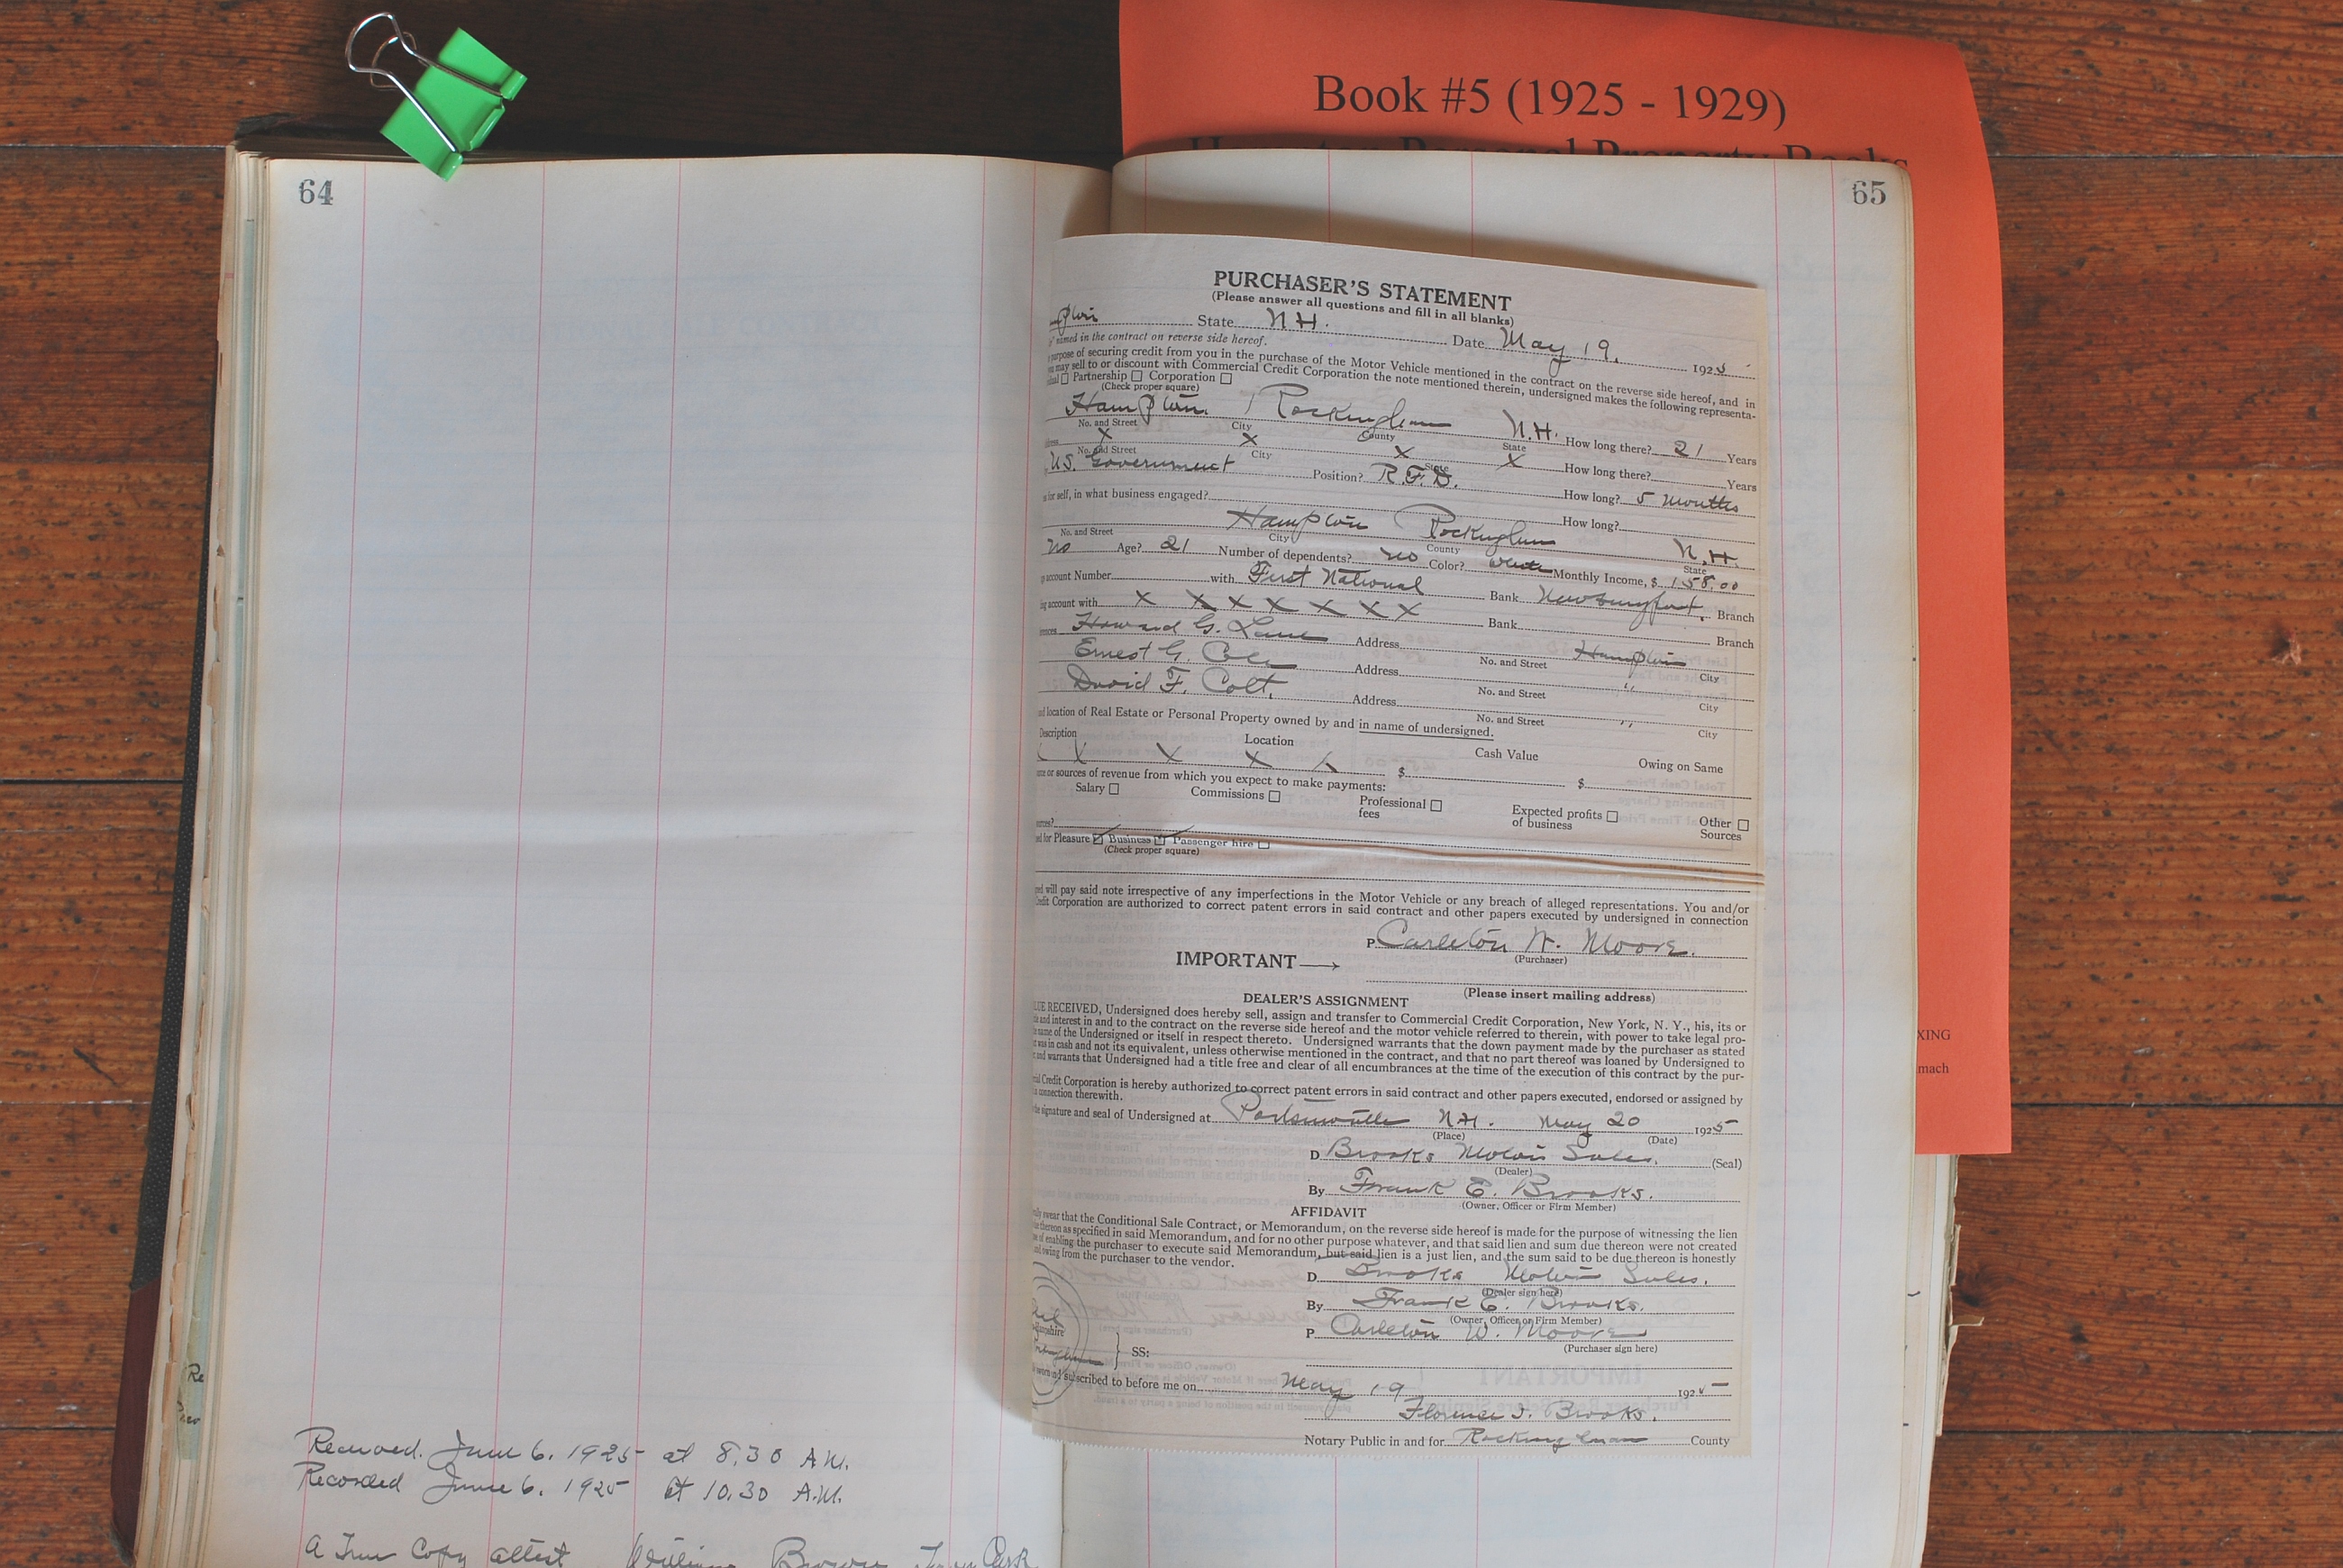 Book #5 (1925 - 1929)
Personal Property Books
64
65
PURCHASER'S STATEMENT
(Please answer all questions and fill in all blanks)
State N.H. Date May 19, 1925
named in the contract on reverse side hereof.
purpose of securing credit from you in the purchase of the Motor Vehicle mentioned in the contract on the reverse side hereof, and in
you may sell to or discount with Commercial Credit Corporation the note mentioned therein, undersigned makes the following representa-
Partnership ☐ Corporation ☐
(Check proper square)
Hampton Rockingham N.H. How long there? 21 Years
No. and Street City County State
X X X X How long there? Years
No. and Street City State
U.S. Government Position? R.F.D. How long? 5 months
for self, in what business engaged? How long?
Hampton Rockingham N.H.
No. and Street City County State
no Age? 21 Number of dependents? no Color? white Monthly Income, $ 158.00
account Number with First National Bank Newburyport. Branch
account with X X X X X X X Bank Branch
Howard G. Lane Address Hampton
No. and Street City
Ernest G. Cole Address "
No. and Street City
David F. Colt. Address "
No. and Street City
location of Real Estate or Personal Property owned by and in name of undersigned.
Description Location Cash Value Owing on Same
X X X X $ $
or sources of revenue from which you expect to make payments:
Salary ☐ Commissions ☐ Professional fees ☐ Expected profits of business ☐ Other Sources ☐
for Pleasure ☑ Business ☑ Passenger hire ☐
(Check proper square)
will pay said note irrespective of any imperfections in the Motor Vehicle or any breach of alleged representations. You and/or
Credit Corporation are authorized to correct patent errors in said contract and other papers executed by undersigned in connection
P Carleton W. Moore.
(Purchaser)
IMPORTANT →
(Please insert mailing address)
DEALER'S ASSIGNMENT
RECEIVED, Undersigned does hereby sell, assign and transfer to Commercial Credit Corporation, New York, N. Y., his, its or
and interest in and to the contract on the reverse side hereof and the motor vehicle referred to therein, with power to take legal pro-
name of the Undersigned or itself in respect thereto. Undersigned warrants that the down payment made by the purchaser as stated
was in cash and not its equivalent, unless otherwise mentioned in the contract, and that no part thereof was loaned by Undersigned to
and warrants that Undersigned had a title free and clear of all encumbrances at the time of the execution of this contract by the pur-
Credit Corporation is hereby authorized to correct patent errors in said contract and other papers executed, endorsed or assigned by
connection therewith.
the signature and seal of Undersigned at Portsmouth N.H. May 20 1925
(Place) (Date)
D Brooks Motor Sales. (Seal)
(Dealer)
By Frank E. Brooks.
(Owner, Officer or Firm Member)
AFFIDAVIT
swear that the Conditional Sale Contract, or Memorandum, on the reverse side hereof is made for the purpose of witnessing the lien
thereon as specified in said Memorandum, and for no other purpose whatever, and that said lien and sum due thereon were not created
of enabling the purchaser to execute said Memorandum, but said lien is a just lien, and the sum said to be due thereon is honestly
owing from the purchaser to the vendor.
D Brooks Motor Sales.
(Dealer sign here)
By Frank E. Brooks.
(Owner, Officer or Firm Member)
P Carleton W. Moore
(Purchaser sign here)
SS:
subscribed to before me on May 19 1925
Florence I. Brooks.
Notary Public in and for Rockingham County
Received. June 6. 1925 at 8.30 A.M.
Recorded June 6. 1925 at 10.30 A.M.
A True Copy attest William Brown Town Clerk
XING
mach